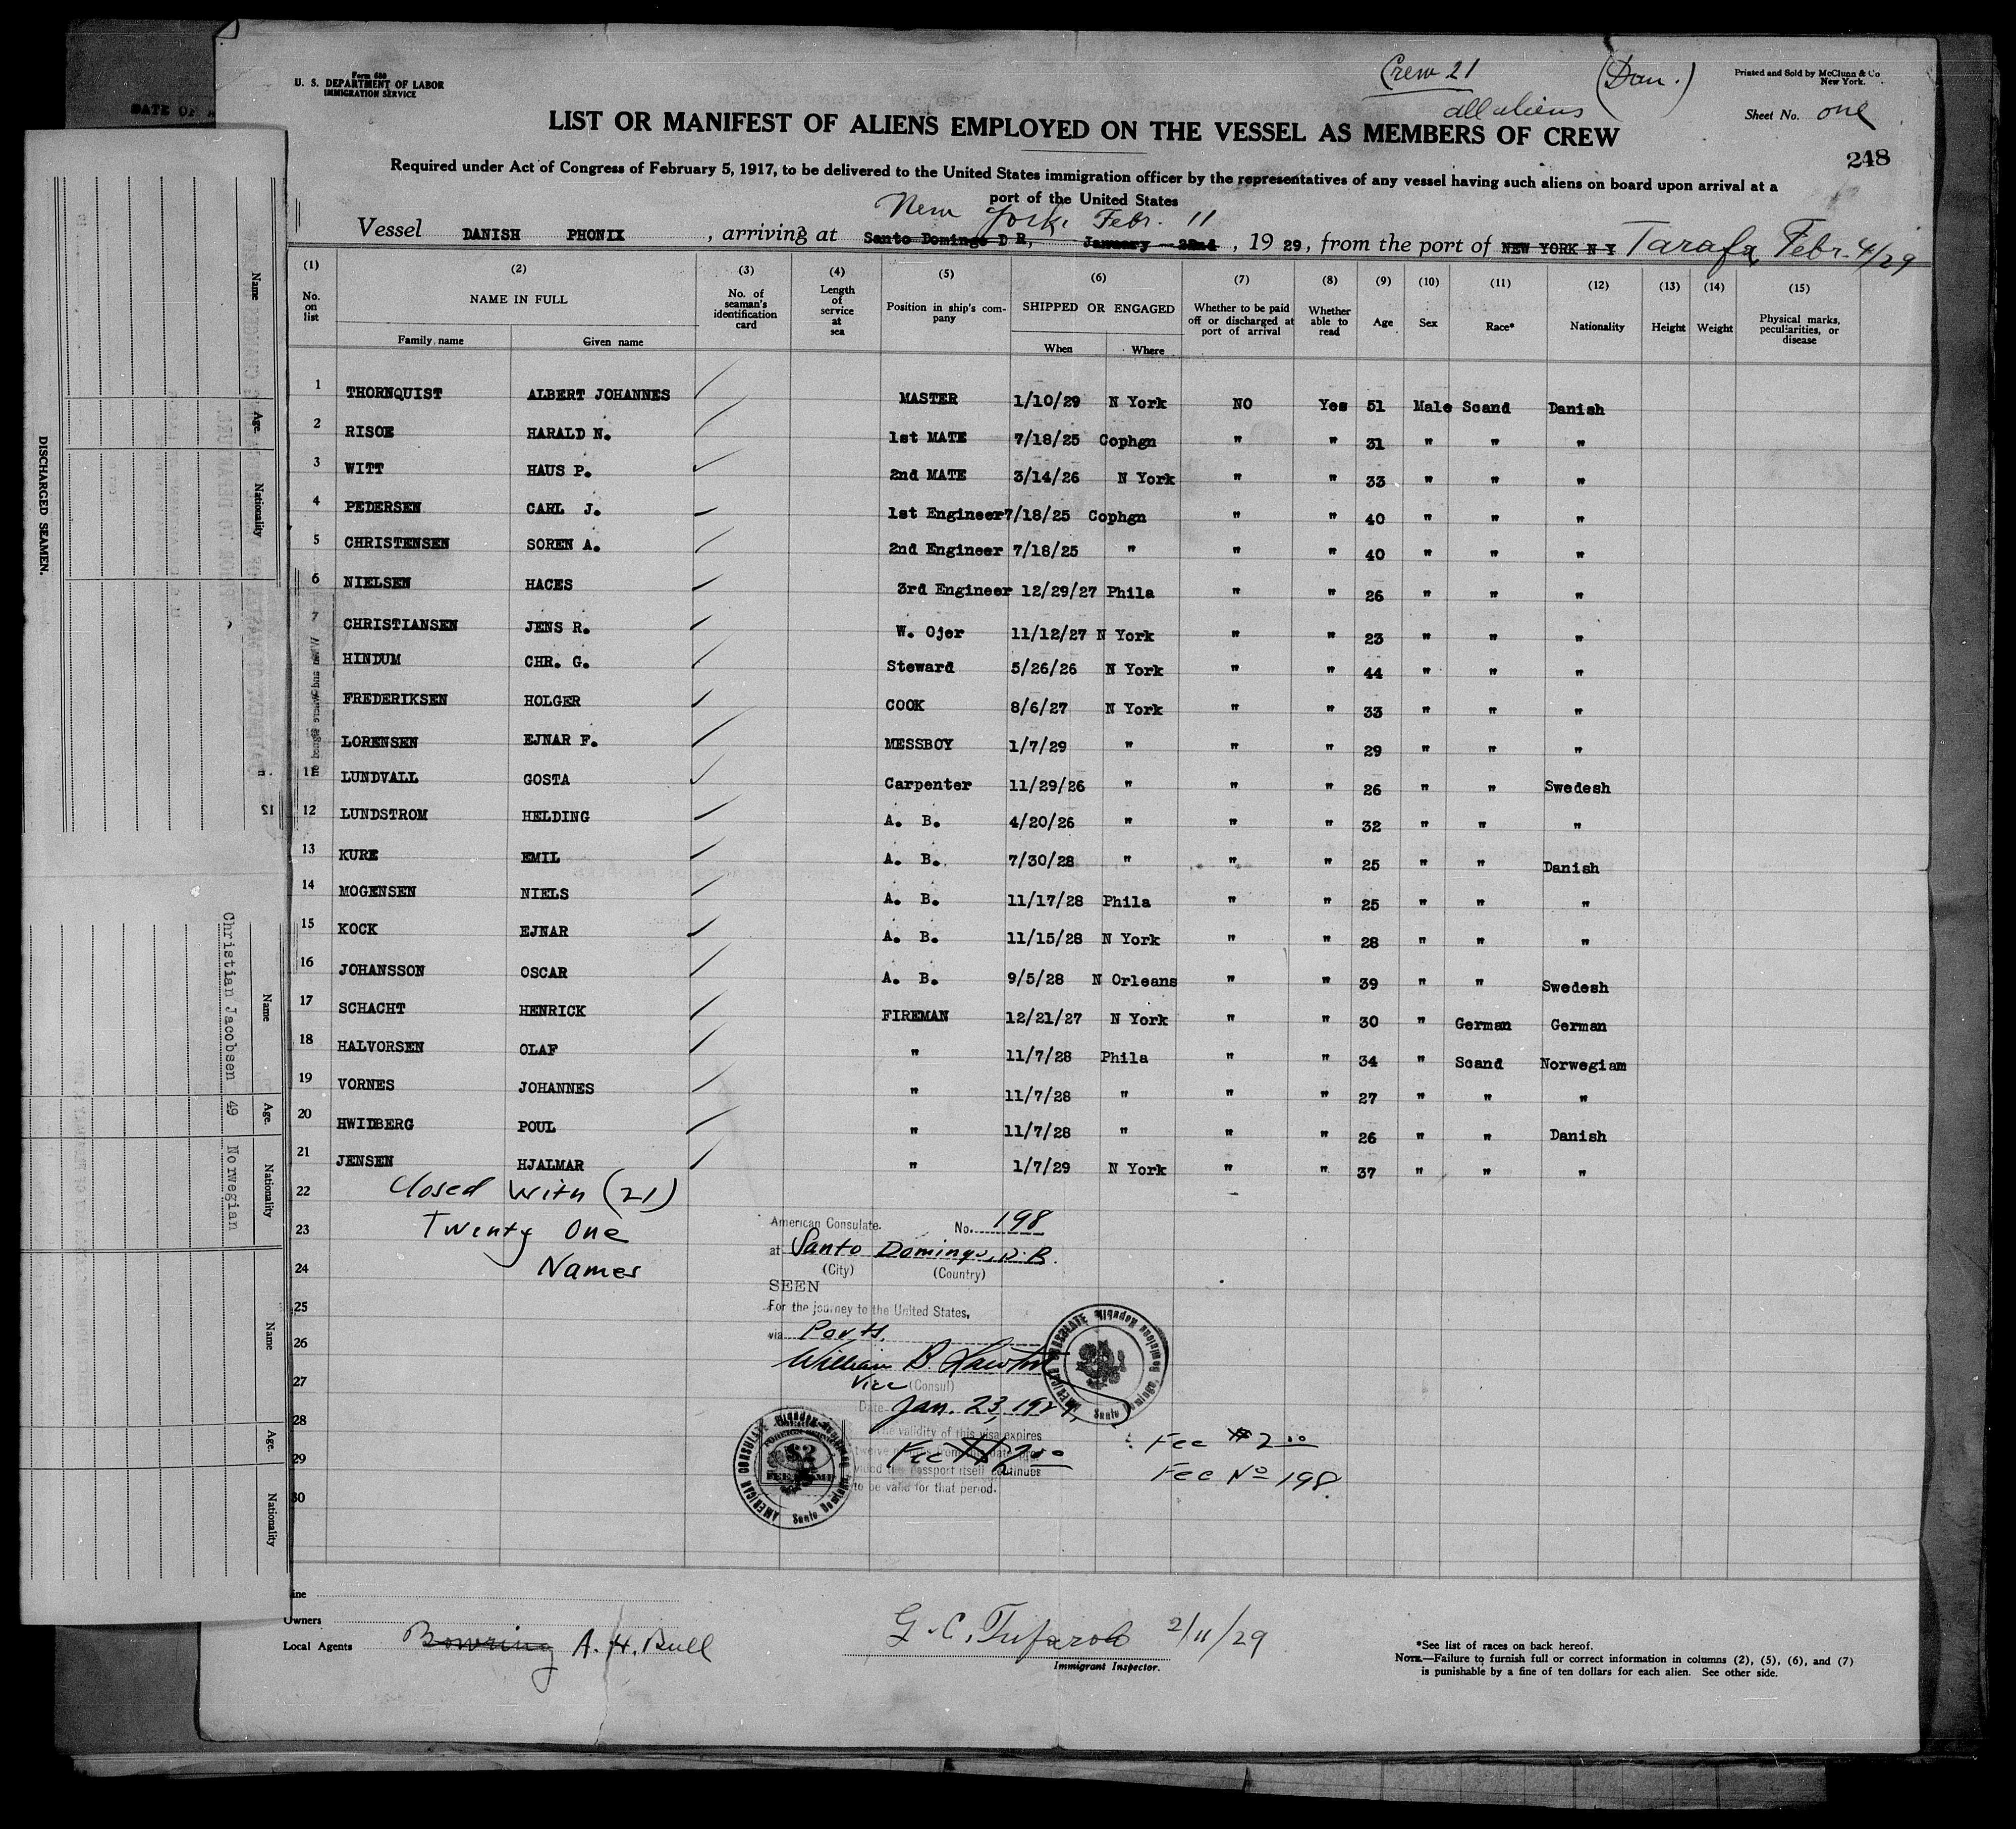 Form 680
U. S. DEPARTMENT OF LABOR
IMMIGRATION SERVICE
Crew 21 (Dan.)
all aliens
Printed and Sold by McClunn & Co
New York.
Sheet No. one
LIST OR MANIFEST OF ALIENS EMPLOYED ON THE VESSEL AS MEMBERS OF CREW
248
Required under Act of Congress of February 5, 1917, to be delivered to the United States immigration officer by the representatives of any vessel having such aliens on board upon arrival at a
port of the United States
New York, Febr. 11
Vessel DANISH PHONIX, arriving at Santo Domingo D R, January 22nd, 19 29, from the port of NEW YORK N Y Tarafa, Febr. 4/29
(1) (2) (3) (4) (5) (6) (7) (8) (9) (10) (11) (12) (13) (14) (15)
No. on list NAME IN FULL No. of seaman's identification card Length of service at sea Position in ship's company SHIPPED OR ENGAGED Whether to be paid off or discharged at port of arrival Whether able to read Age Sex Race* Nationality Height Weight Physical marks, peculiarities, or disease
Family name Given name When Where
1 THORNQUIST ALBERT JOHANNES MASTER 1/10/29 N York NO Yes 51 Male Scand Danish
2 RISOE HARALD N. 1st MATE 7/18/25 Cophgn " " 31 " " "
3 WITT HAUS P. 2nd MATE 3/14/26 N York " " 33 " " "
4 PEDERSEN CARL J. 1st Engineer 7/18/25 Cophgn " " 40 " " "
5 CHRISTENSEN SOREN A. 2nd Engineer 7/18/25 " " " 40 " " "
6 NIELSEN HACES 3rd Engineer 12/29/27 Phila " " 26 " " "
7 CHRISTIANSEN JENS R. W. Ojer 11/12/27 N York " " 23 " " "
HINDUM CHR. G. Steward 5/26/26 N York " " 44 " " "
FREDERIKSEN HOLGER COOK 8/6/27 N York " " 33 " " "
LORENSEN EJNAR F. MESSBOY 1/7/29 " " " 29 " " "
11 LUNDVALL GOSTA Carpenter 11/29/26 " " " 26 " " Swedesh
12 LUNDSTROM HELDING A. B. 4/20/26 " " " 32 " " "
13 KURE EMIL A. B. 7/30/28 " " " 25 " " Danish
14 MOGENSEN NIELS A. B. 11/17/28 Phila " " 25 " " "
15 KOCK EJNAR A. B. 11/15/28 N York " " 28 " " "
16 JOHANSSON OSCAR A. B. 9/5/28 N Orleans " " 39 " " Swedesh
17 SCHACHT HENRICK FIREMAN 12/21/27 N York " " 30 " German German
18 HALVORSEN OLAF " 11/7/28 Phila " " 34 " Scand Norwegiam
19 VORNES JOHANNES " 11/7/28 " " " 27 " " "
20 HWIDBERG POUL " 11/7/28 " " " 26 " " Danish
21 JENSEN HJALMAR " 1/7/29 N York " " 37 " " "
22 Closed with (21)
23 Twenty One
24 Names
25
26
27
28
29
30
American Consulate. No. 198
at Santo Domingo, D.R.
(City) (Country)
SEEN
For the journey to the United States,
via Ports.
William B. Lawton
Vice (Consul)
Date Jan. 23, 1929,
The validity of this visa expires
Fee $2.00
passport itself continues
to be valid for that period.
AMERICAN CONSULATE Santo Domingo, Dominican Republic
AMERICAN CONSULATE Santo Domingo, Dominican Republic
$2
Fee $2.00
Fee No 198.
Line
Owners
Local Agents Bowring A. H. Bull
2/11/29
Immigrant Inspector.
*See list of races on back hereof.
NOTE.—Failure to furnish full or correct information in columns (2), (5), (6), and (7)
is punishable by a fine of ten dollars for each alien. See other side.
DISCHARGED SEAMEN.
Name Age. Nationality
12
Name Age. Nationality
Christian Jacobsen 49 Norwegian
Name Age. Nationality